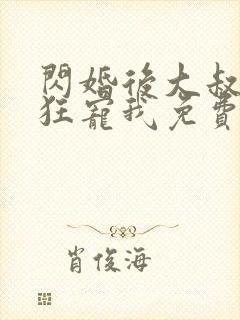 閃婚後大叔
狂寵我免費
肖俊海